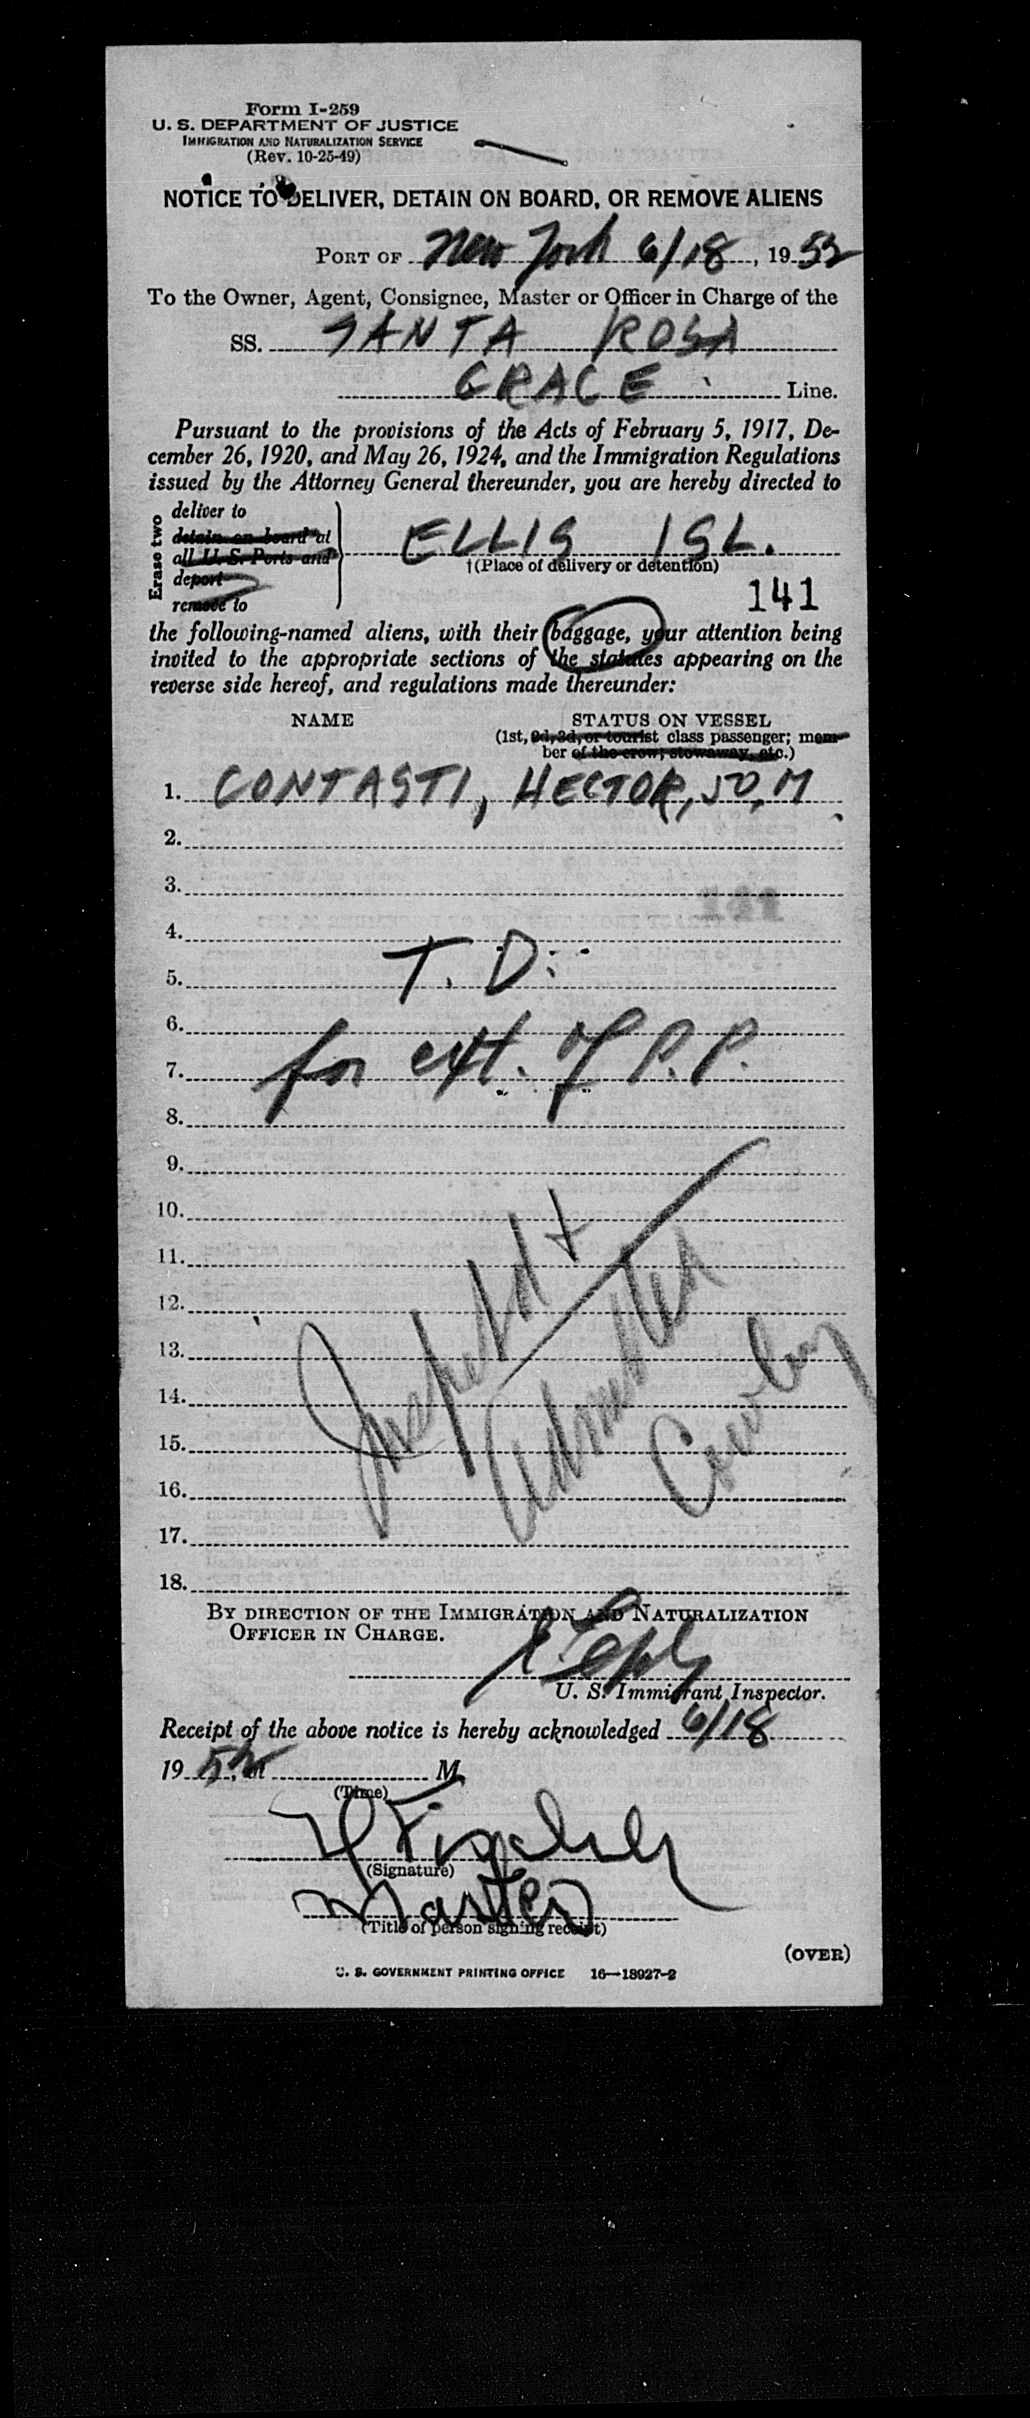 Form I-259
U. S. DEPARTMENT OF JUSTICE
IMMIGRATION AND NATURALIZATION SERVICE
(Rev. 10-25-49)
NOTICE TO DELIVER, DETAIN ON BOARD, OR REMOVE ALIENS
PORT OF New York 6/18, 1952
To the Owner, Agent, Consignee, Master or Officer in Charge of the
SS. SANTA ROSA
GRACE Line.
Pursuant to the provisions of the Acts of February 5, 1917, De-
cember 26, 1920, and May 26, 1924, and the Immigration Regulations
issued by the Attorney General thereunder, you are hereby directed to
Erase two
deliver to
detain on board at
all U. S. Ports and
deport
remove to
ELLIS ISL.
†(Place of delivery or detention)
141
the following-named aliens, with their baggage, your attention being
invited to the appropriate sections of the statutes appearing on the
reverse side hereof, and regulations made thereunder:
NAME STATUS ON VESSEL
(1st, 2d, 3d, or tourist class passenger; mem-
ber of the crew; stowaway, etc.)
1. CONTASTI, HECTOR, 50, M
2.
3.
4.
T. D.
5.
6.
for ext. of P.P.
7.
8.
9.
10.
11.
12.
13.
14.
15.
16.
17.
18.
Inspected +
Admitted
BY DIRECTION OF THE IMMIGRATION AND NATURALIZATION
OFFICER IN CHARGE.
U. S. Immigrant Inspector.
Receipt of the above notice is hereby acknowledged 6/18
1952, at M.
(Time)
(Signature)
Master
(Title of person signing receipt)
(OVER)
U. S. GOVERNMENT PRINTING OFFICE 16—18927-2